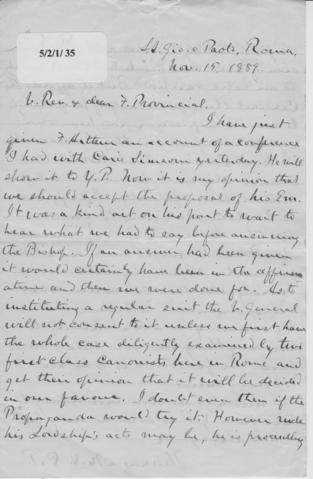 5/2/1/35
SS. Gio. e Paolo, Roma.
Nov. 15, 1889.
V. Rev. & dear F. Provincial,
I have just
given F. Arthur an account of a conference
I had with Card. Simeoni yesterday. He will
show it to Y.P. Now it is my opinion that
we should accept the proposal of his Em.
It was a kind act on his part to wait to
hear what we had to say before answering
the Bishop. If an answer had been given
it would certainly have been in the affirm-
ative and then we were done for. As to
instituting a regular suit the V. General
will not consent to it unless we first have
the whole case diligently examined by two
first class Canonists here in Rome and
get their opinion that it will be decided
in our favour. I doubt even then if the
Propaganda would try it. However rude
his Lordship's acts may be, he is proceeding